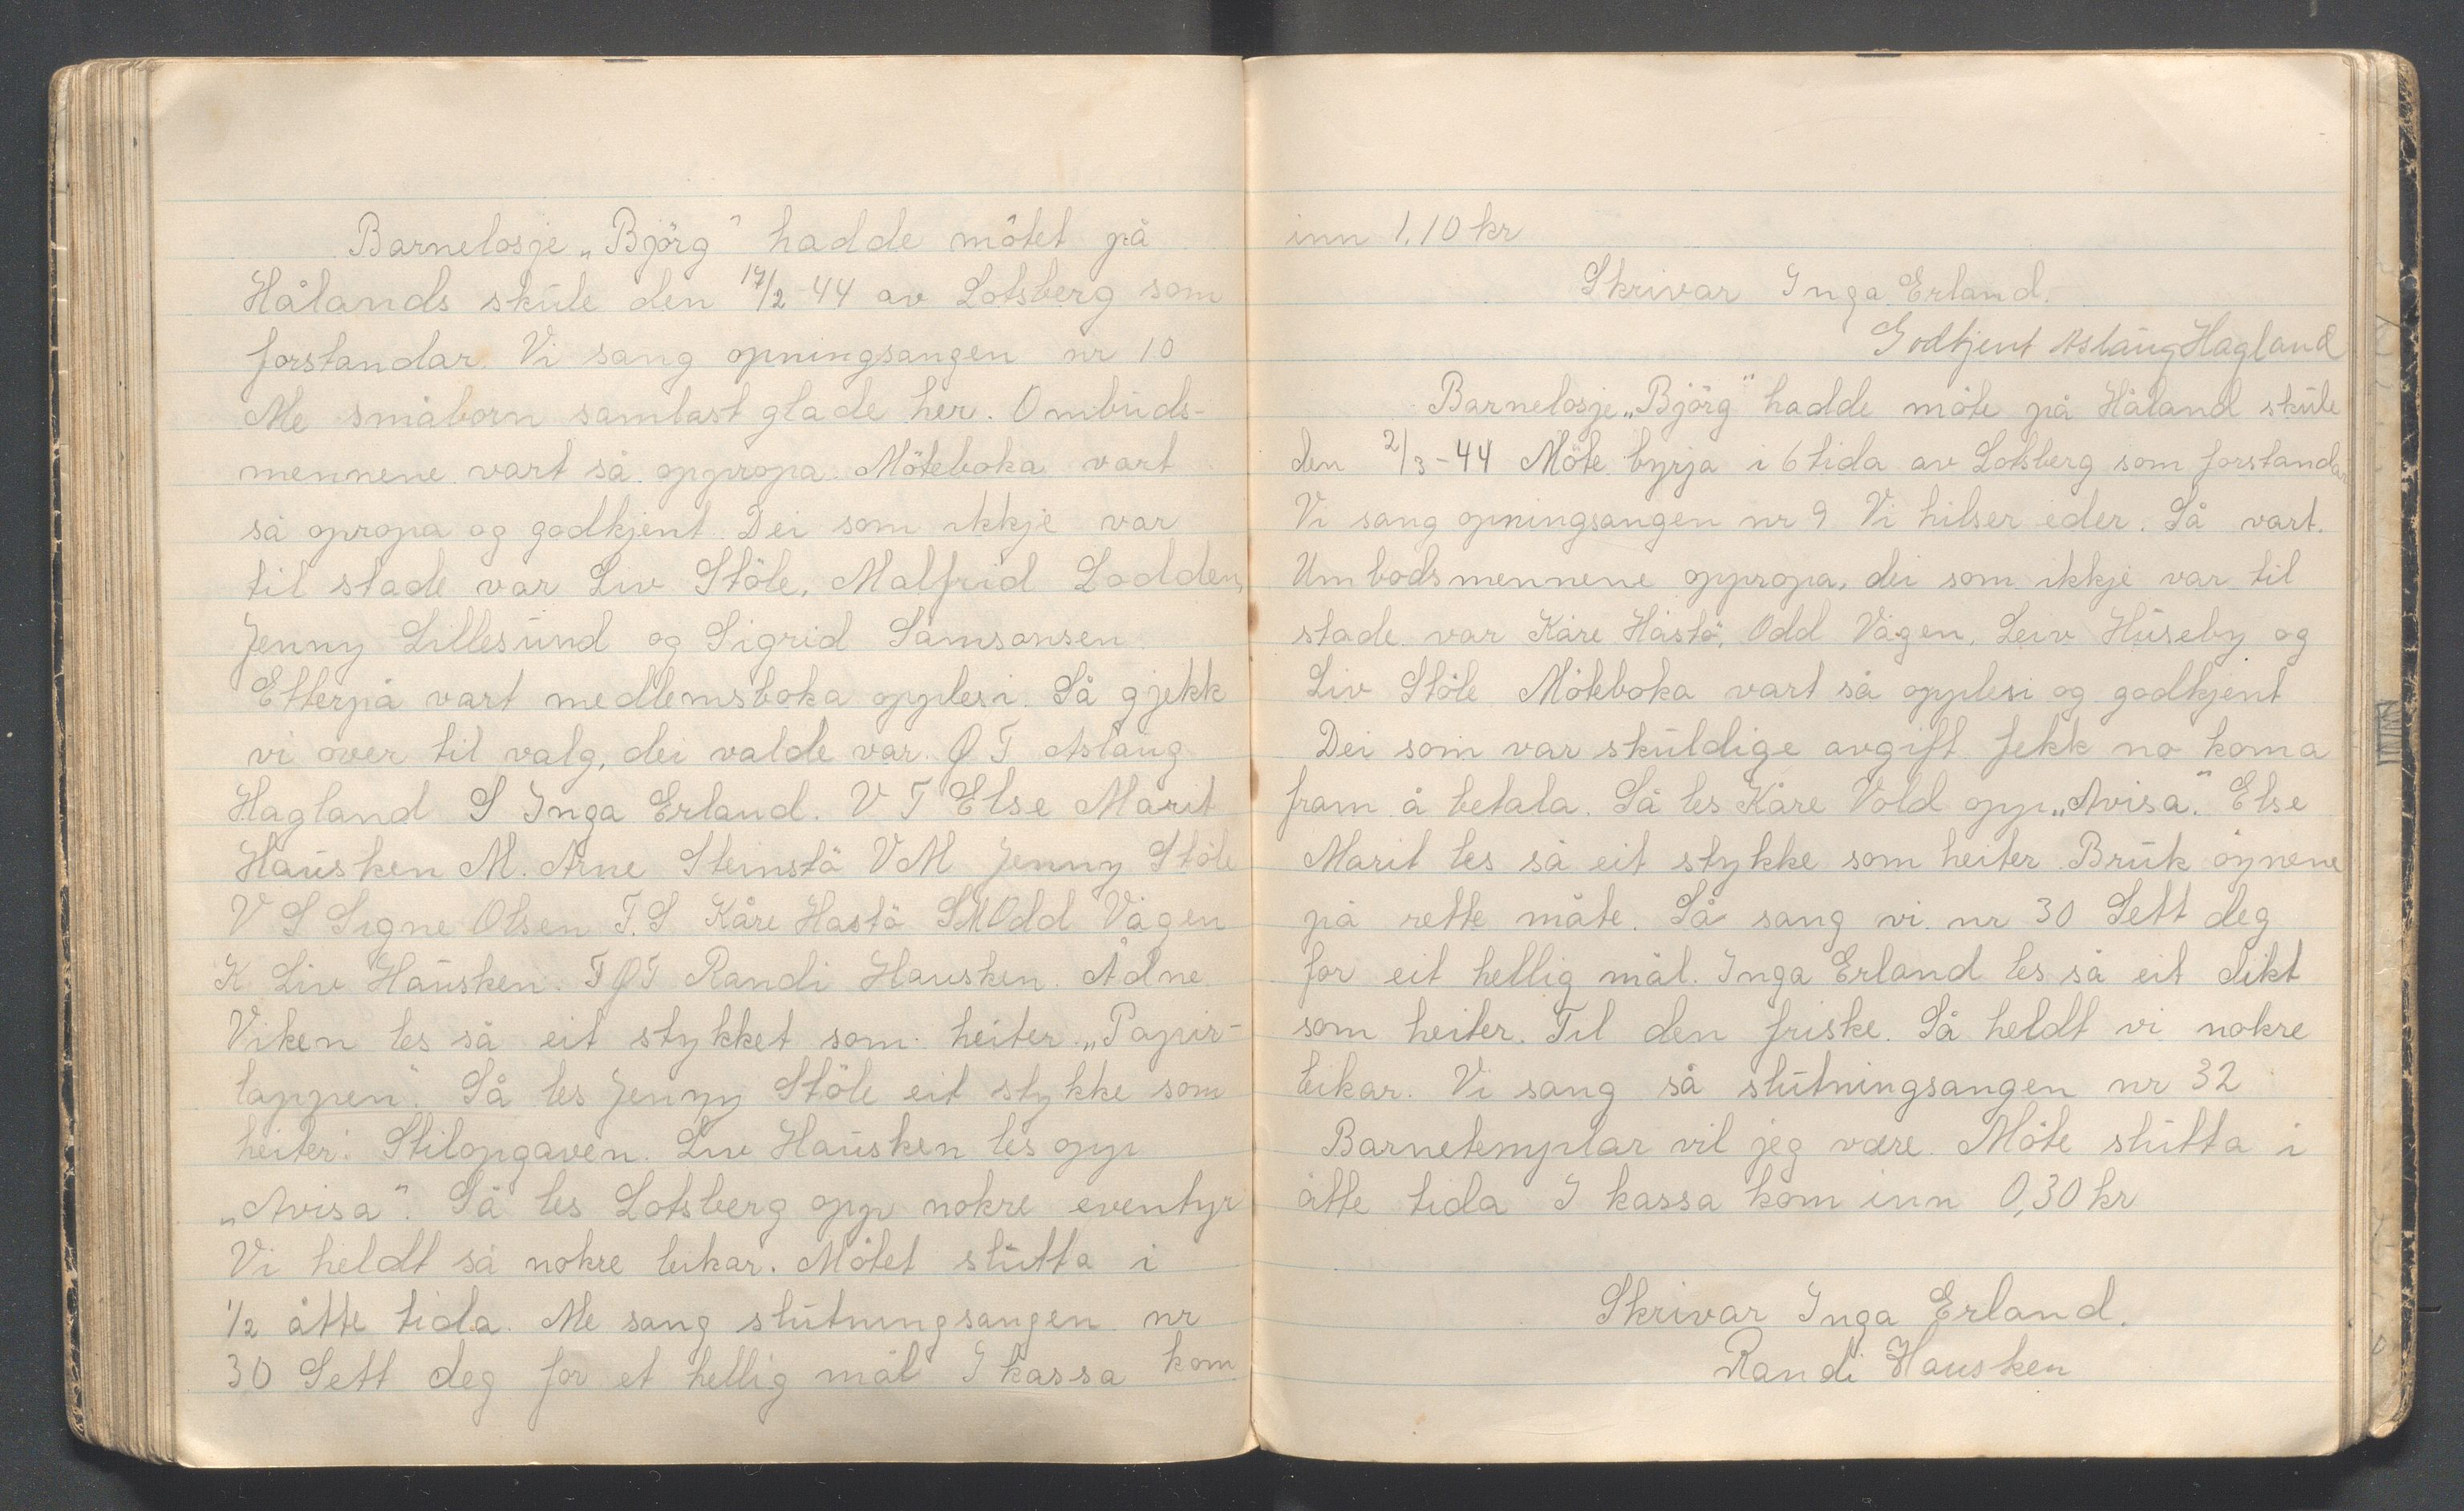 Barnelosje „Björg" hadde mötet på
Hålands skule den 17/2-44 av Lotsberg som
forstandar. Vi sang opningsangen nr 10
Me småborn samlast glade her. Ombuds-
mennene vart så oppropa. Möteboka vart
så opropa og godkjent. Dei som ikkje var
til stade var Liv Stöle, Malfrid Lodden,
Jenny Lillesund og Sigrid Samsonsen.
Etterpå vart medlemsboka opplesi. Så gjekk
vi over til valg, dei valde var. Ø T Aslaug
Hagland S Inga Erland. V T Else Marit
Hausken M. Arne Steinstö V M Jenny Stöle
V S Signe Olsen T.S Kåre Hastö SM Odd Vågen
K Liv Hausken. F Ø T Randi Hausken. Ådne
Viken les så eit stykket som heiter „Papir-
lappen". Så les Jenny Stöle eit stykke som
heiter: Stilopgaven. Liv Hausken les opp
„Avisa". Så les Lotsberg opp nokre eventyr
Vi heldt så nokre leikar. Mötet slutta i
1/2 åtte tida. Me sang slutningsangen nr
30 Sett deg for et hellig mål I kassa kom
inn 1,10 kr
Skrivar Inga Erland.
Godkjent Aslaug Hagland
Barnelosje „Björg" hadde möte på Håland skule
den 2/3-44 Möte byrja i 6 tida av Lotsberg som forstandar
Vi sang opningsangen nr 9 Vi hilser eder. Så vart.
Umbodsmennene oppropa, dei som ikkje var til
stade var Kåre Hastö, Odd Vågen, Leiv Huseby og
Liv Stöle Möteboka vart så opplesi og godkjent
Dei som var skuldige avgift fekk no koma
fram å betala. Så les Kåre Vold opp „Avisa". Else
Marit les så eit stykke som heiter Bruk öynene
på rette måte. Så sang vi nr 30 Sett deg
for eit hellig mål. Inga Erland les så eit dikt
som heiter. Til den friske. Så heldt vi nokre
leikar. Vi sang så slutningsangen nr 32
Barnetemplar vil jeg være. Möte slutta i
åtte tida I kassa kom inn 0,30 kr
Skrivar Inga Erland.
Randi Hausken